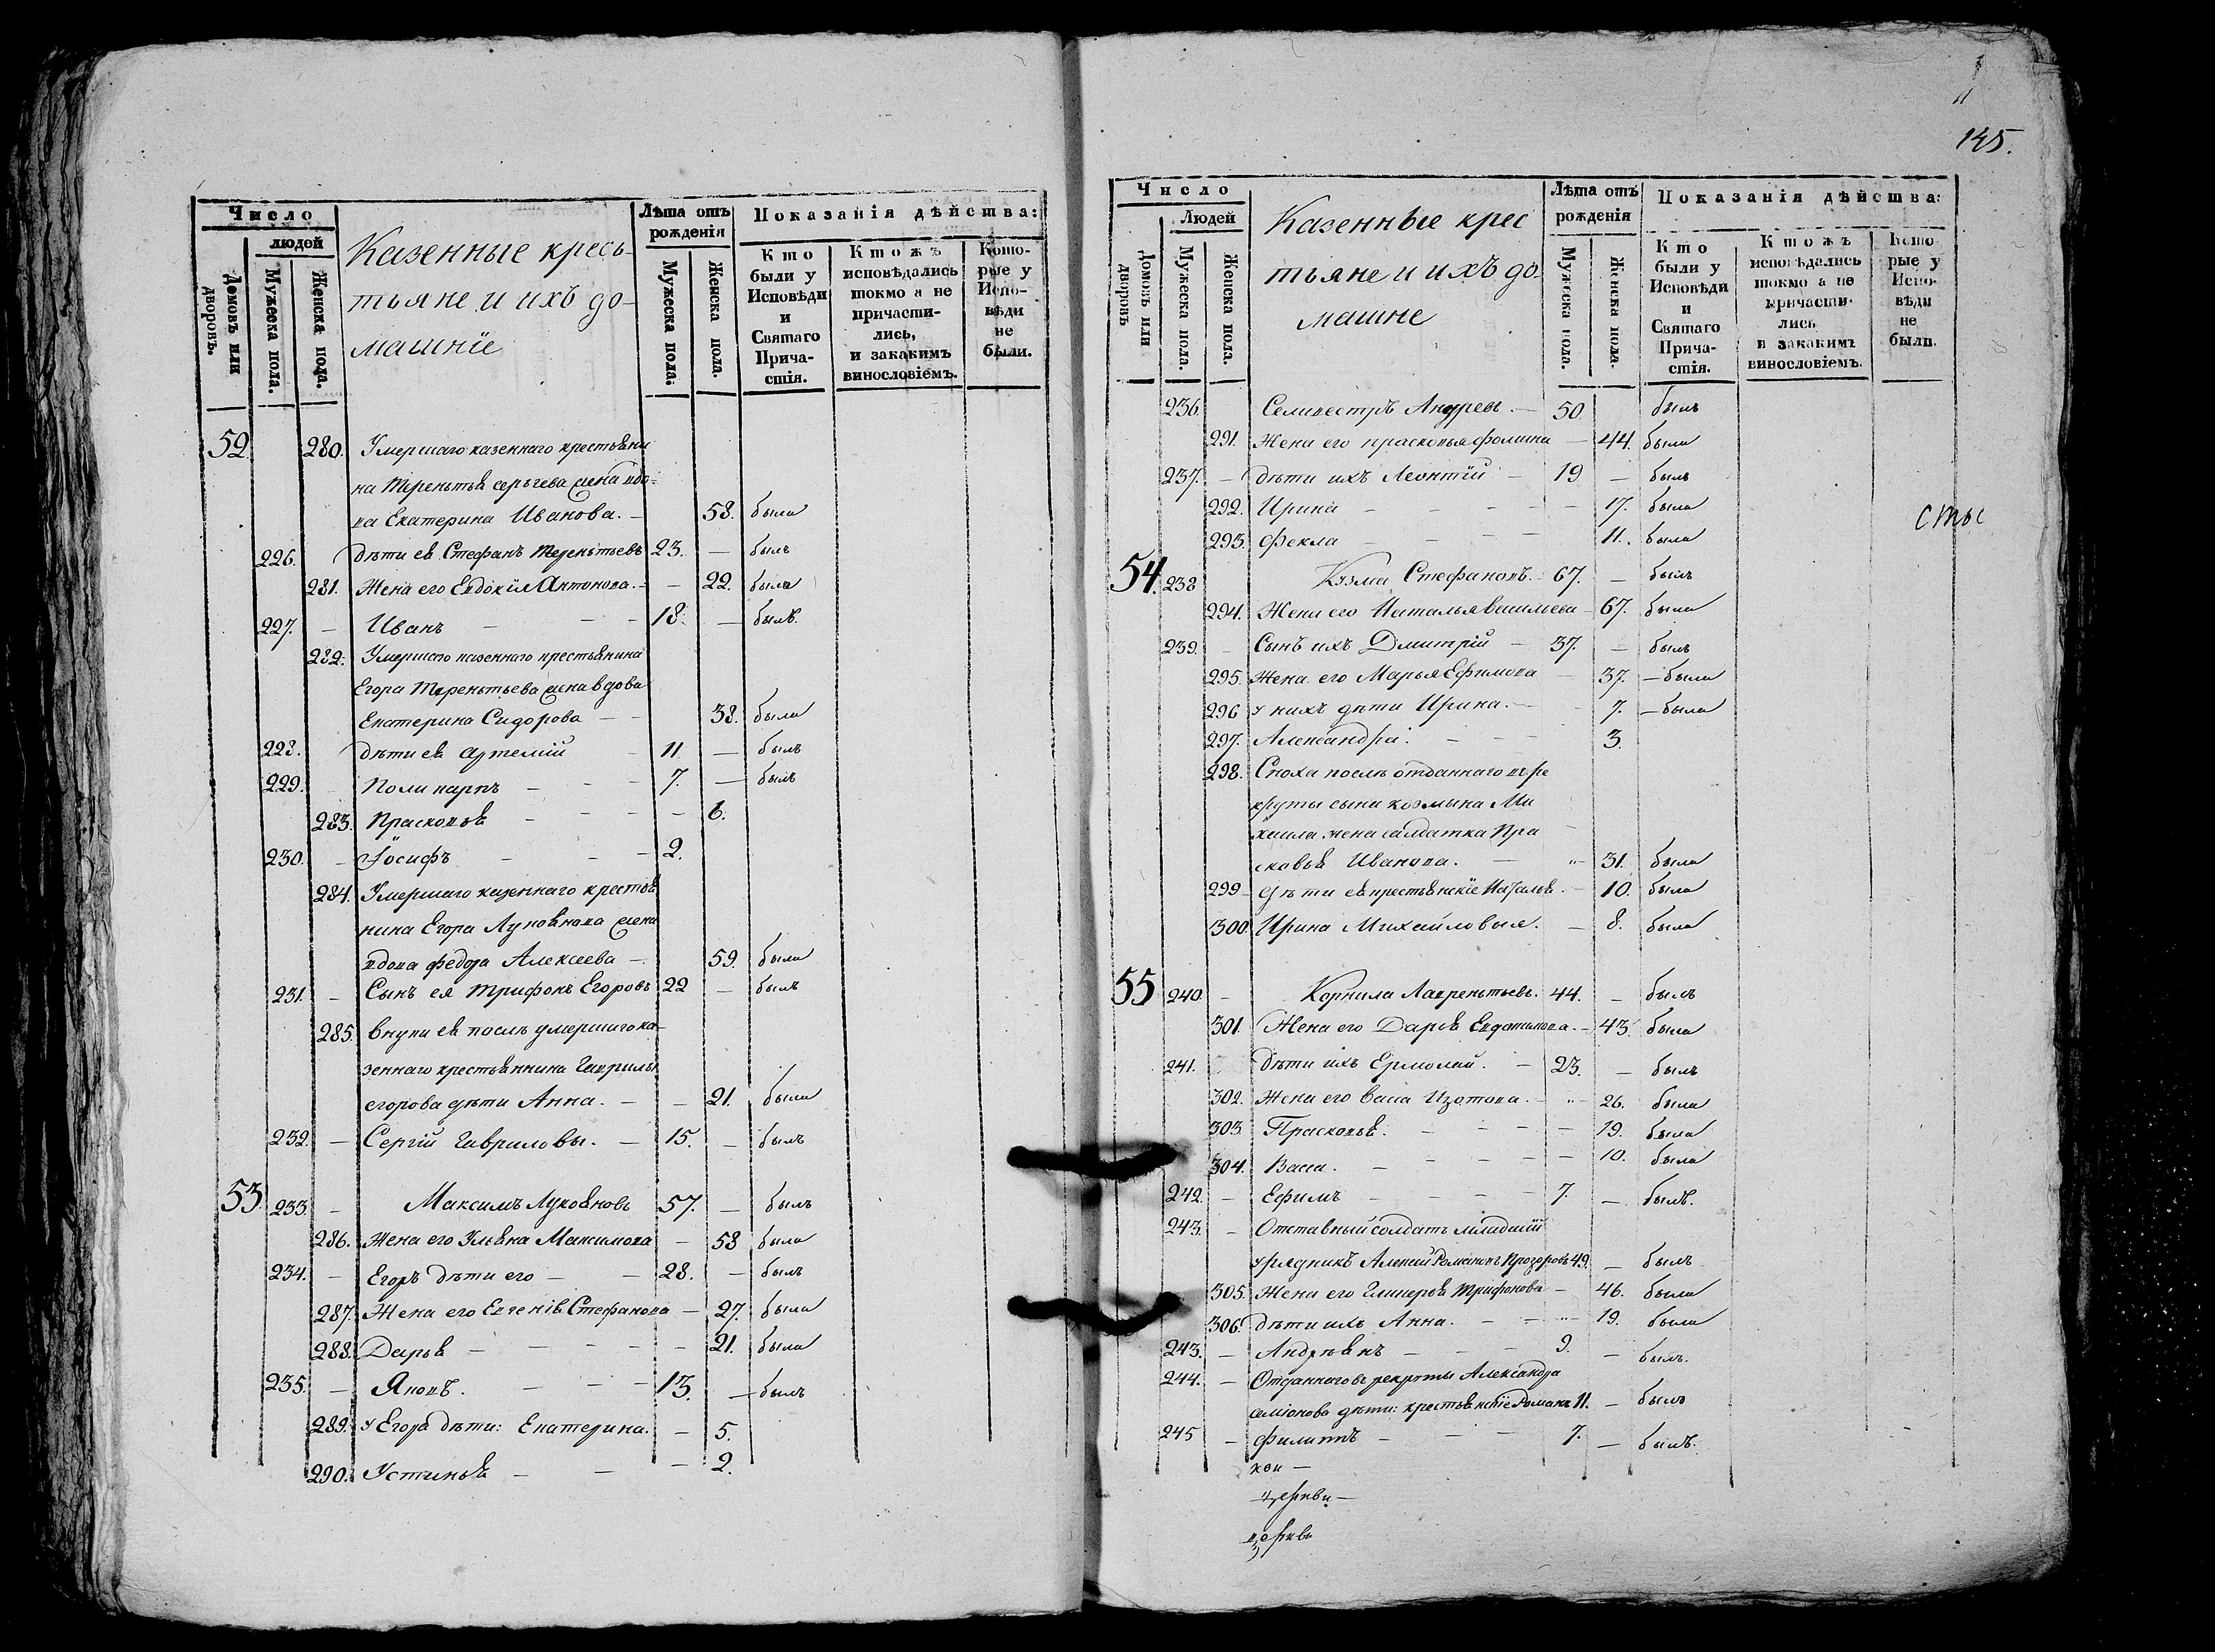 Число
людей
Домовъ или дворовъ.
Мужеска пола.
Женска пола.
Казенные кресь-
тьяне и ихъ до-
машніе
Лѣта отъ рожденія
Мужеска пола.
Женска пола.
Показанія дѣйства:
Кто были у Исповѣди и Святаго Прича-стія.
Ктожъ исповѣдались токмо а не причасти-лись, и закакимъ винословіемъ.
Кото-рые у Испо-вѣди не были.
52 280. Умершаго казеннаго крестьяни
на Терентья сергѣева жена вдо-
ва Екатерина Иванова. — 58. была
226. Дѣти ея Стефанъ Терентьевъ 23. — былъ
281. Жена его Евдокія Антонова. — — 22. была
227. — Иванъ — — — 18. — былъ.
282. Умершаго казеннаго крестьянина
Егора Терентьева жена вдова
Екатерина Сидорова — — 38. была
228. Дѣти ея Артемій — 11 — былъ
229. — Поликарпъ — — — 7. — былъ
283. Прасковья — — — — 6.
230. — Іосифъ — — — 2.
284. Умершаго казеннаго крестья
нина Егора Лукоянова жена
вдова федора Алексеева — 59. была
231. — Сынъ ея Трифонъ Егоровъ 22 — былъ
285. внуки ея послѣ умершаго ка-
зеннаго крестьянина Гаврилы
егорова дѣти Анна. — — 21. была
232. — Сергій Гавриловы. — 15. — былъ
53. 233. — Максимъ Лукояновъ 57. — былъ
286. Жена его Ульяна Максимова — 58 была
234. — Егоръ дѣти его — — 28. — былъ
287. Жена его Евгенія Стефанова — 27. была
288. Дарья — — — — — 21. была
235. — Яковъ. — — — 13. — былъ
289. У Егора дѣти: Екатерина. — 5.
290. Устинья — — — 2.
145.
Число
Людей
Домовъ или дворовъ
Мужеска пола.
Женска пола.
Казенные крес
тьяне и ихъ до-
машне
Лѣта отъ рожденія
Мужеска пола.
Женска пола.
Показанія дѣйства:
Кто были у Исповѣди и Святаго Прича-стія.
Ктожъ исповѣдались токмо а не причасти-лись и закакимъ винословіемъ.
Кото-рые у Испо-вѣди не были.
236. Селивестръ Андреевъ. — 50 былъ
291. Жена его прасковья фомина — 44. была
237. — Дѣти ихъ Леонтій — 19 — былъ
292. Ирина — — — — 17. была
сты
293. Фекла — — — — 11. была
54. 238 Козма Стефановъ. — 67. — былъ
294. Жена его Наталья васильева — 67. была
239. — Сынъ ихъ Дмитрій — 37. — былъ
295. Жена его Марья Ефимова — 37. — была
296 у нихъ дѣти Ирина. — 7. — была
297. Александра. — — — 3.
298. Сноха послѣ отданнаго въ ре
круты сына козмына Ми
хаила жена салдатка Пра
сковья Иванова. — " 31. была
299 — Дѣти ея крестьянскіе Наталья. — 10. была
300 Ирина Михайловы. — 8. была
55 240. — Корнила Лаврентьевъ. 44. — былъ
301. Жена его Дарья Евдокимова. — 43. была
241. Дѣти ихъ Ермолай. — 23. — былъ
302. Жена его васа Изотова. — " 26. была
303. Прасковья. — — — — 19. была
304. Васса. — — — — — 10. была
242. — Ефимъ — — — — 7. — былъ.
243. — Отставный солдатъ младшій
урядникъ Алексей Романовъ Прозоровъ 49. — былъ
305. Жена его Гликерья Трифонова — 46. была
306. Дѣти ихъ Анна. — — " 19. была
243. — Андреянъ — — — 9. — былъ.
244. — Отданнаго въ рекруты Александра
семіонова дѣти: крестьянстіе Романъ 11. — былъ
245 — Филиппъ — — — 7. — былъ.
кви —
церкви —
церкви